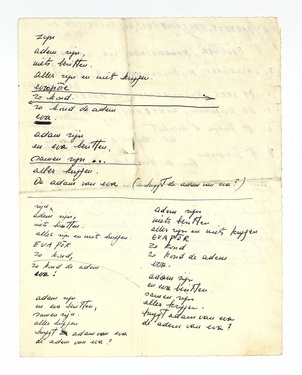 zijn
adem zijn.
niets bezitten.
alles zijn en niet krijgen.
zo koud.
zo koud de adem
eva
adam zijn
en eva bezitten.
(samen zijn ...
alles krijgen.
De adam van eva .. (krijgt de adem van eva?)
zijn,
adem zijn,
niets bezitten,
alles zijn en niet krijgen
EVAPER
zo koud,
zo koud de adem
eva?
adam zijn
en eva bezitten,
samen zijn.
alles krijgen
krijgt adam van eva
de adem van eva?
adem zijn
niets bezitten
alles zijn en niet krijgen
EVAPER
zo koud
zo koud de adem
eva.
adam zijn
en eva bezitten.
samen zijn,
alles krijgen.
krijgt adam van eva
de adem van eva?